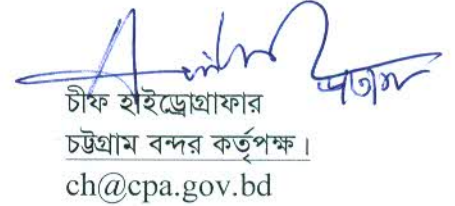 চীফ হাইড্রোগ্রাফার
চট্টগ্রাম বন্দর কর্তৃপক্ষ।
ch@cpa.gov.bd